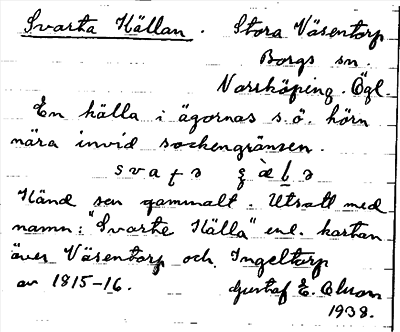 Svarta Källan. Stora Väsentorp
Borgs sn.
Norrköping. Ögl.
En källa i ägornas s.ö. hörn
nära invid sockengränsen.
Känd sen gammalt. Utsatt med
namn: "Svarte Källa" enl. kartan
över Väsentorp och Ingeltorp
av 1815-16. Gustaf E. Olsson
1938.